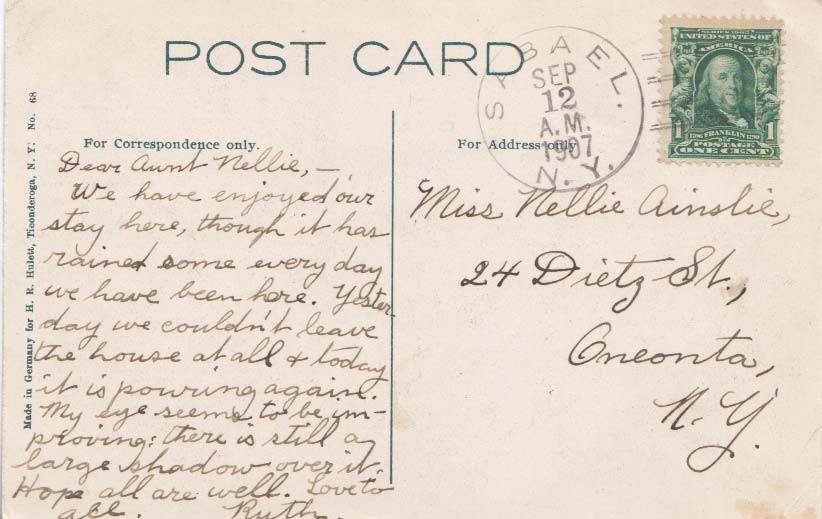 POST CARD
SABAEL.
SEP
12
A.M.
1907
N.Y.
SERIES 1902
UNITED STATES OF
AMERICA
1706 FRANKLIN 1790
1 POSTAGE 1
ONE CENT
For Correspondence only.
For Address only
Dear Aunt Nellie,—
We have enjoyed our
stay here, though it has
rained some every day
we have been here. Yester-
day we couldn't leave
the house at all & today
it is pouring again.
My eye seems to be im-
proving: there is still a
large shadow over it.
Hope all are well. Love to
all. Ruth.
Miss Nellie Ainslie,
24 Dietz St.,
Oneonta,
N.Y.
Made in Germany for H. R. Hulett, Ticonderoga, N. Y. No. 68